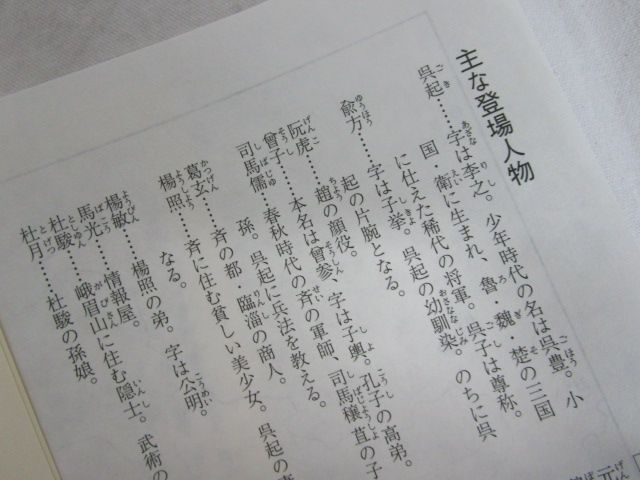 主な登場人物
呉起……字は李之。少年時代の名は呉豊。小
国・衛に生まれ、魯・魏・楚の三国
に仕えた稀代の将軍。呉子は尊称。
兪方……字は子挙。呉起の幼馴染。のちに呉
起の片腕となる。
阮虎……趙の顔役。
曾子……本名は曾参、字は子輿。孔子の高弟。
司馬儒……春秋時代の斉の軍師、司馬穰苴の子
孫。呉起に兵法を教える。
葛玄……斉の都・臨淄の商人。
楊照……斉に住む貧しい美少女。呉起の
なる。
楊敏……楊照の弟。字は公明。
馬光……情報屋。
杜駿……峨眉山に住む隠士。武術の
杜月……杜駿の孫娘。
元